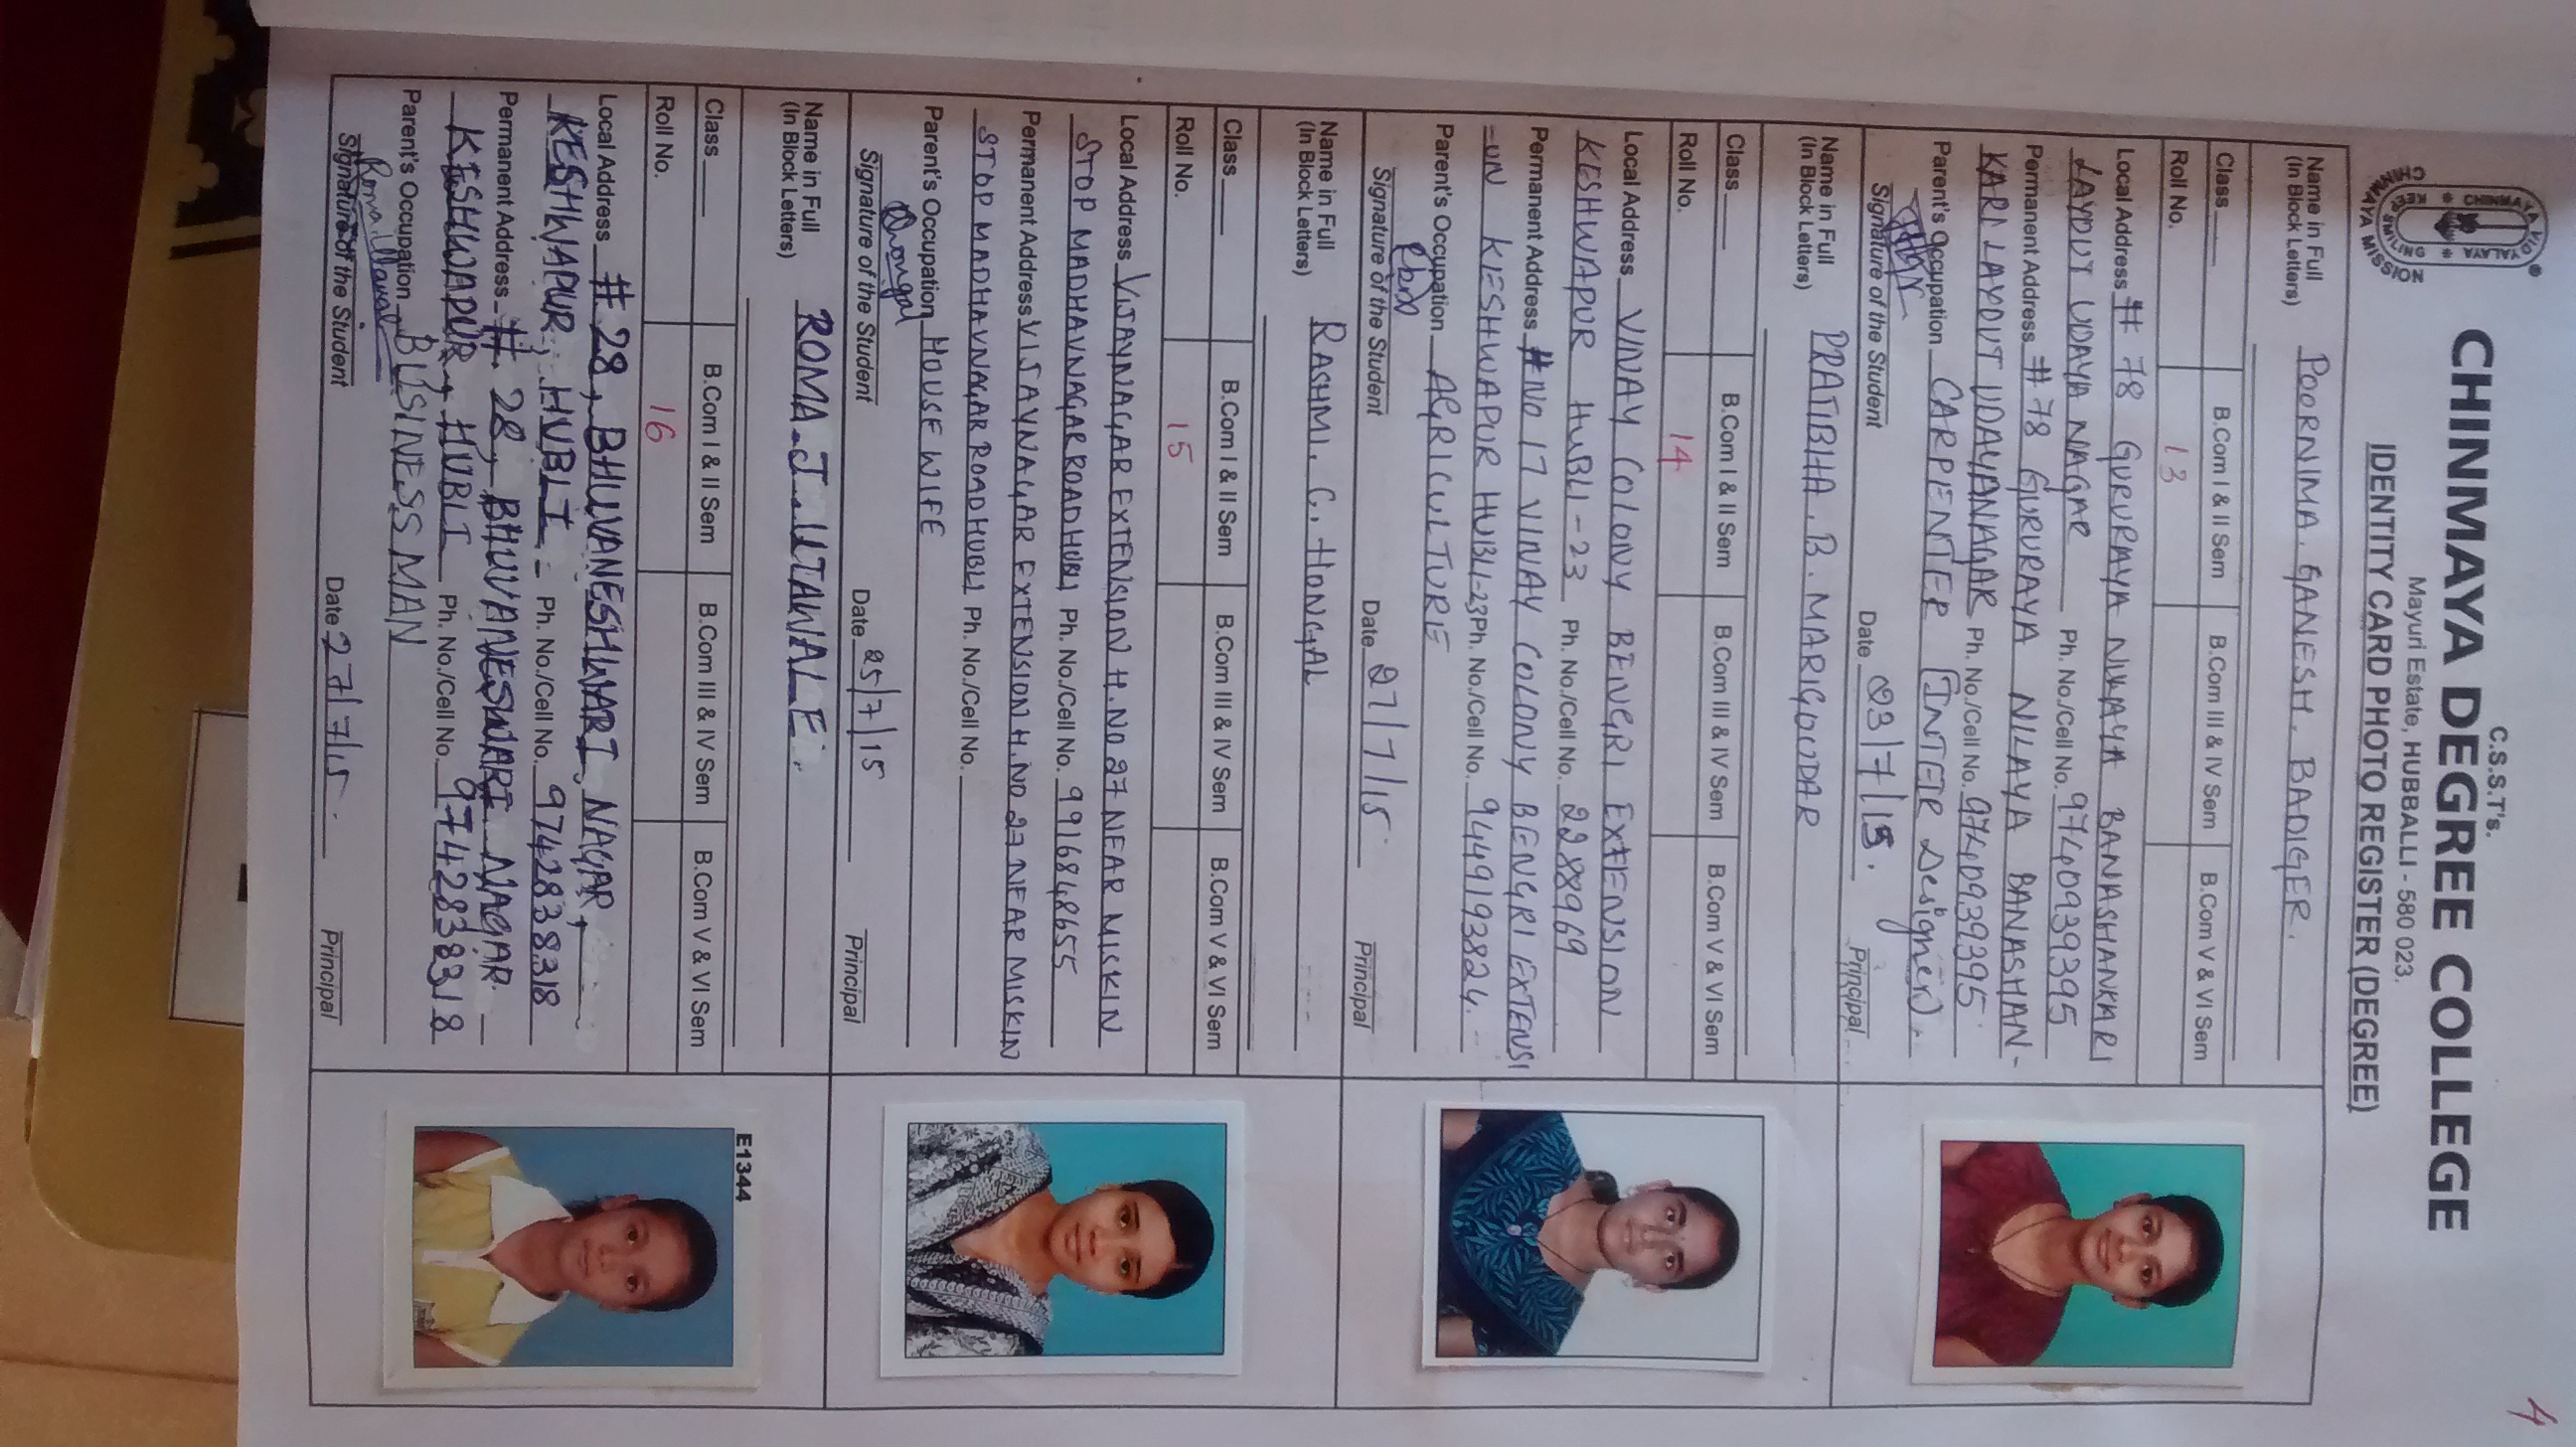 4
CHINMAYA VIDYALAYA
KEEP SMILING
CHINMAYA MISSION
C.S.S.T's.
CHINMAYA DEGREE COLLEGE
Mayuri Estate, HUBBALLI - 580 023.
IDENTITY CARD PHOTO REGISTER (DEGREE)
Name in Full POORNIMA. GANESH. BADIGER.
(In Block Letters)
Class B.Com I & II Sem B.Com III & IV Sem B.Com V & VI Sem
Roll No. 13
Local Address # 78 GURURAYA NILAYA BANASHANKARI
LAYOUT UDAYA NAGAR Ph. No./Cell No. 9740939395
Permanent Address #78 GURURAYA NILAYA BANASHAN-
KARI LAYOUT UDAYANAGAR Ph. No./Cell No. 9740939395.
Parent's Occupation CARPENTER [INTER Designer).
Signature of the Student Date 23/7/15. Principal
Name in Full PRATIBHA. B. MARIGOUDAR
(In Block Letters)
Class B.Com I & II Sem B.Com III & IV Sem B.Com V & VI Sem
Roll No. 14
Local Address VINAY COLONY BENGRI EXTENSION
KESHWAPUR HUBLI-23 Ph. No./Cell No. 2288969
Permanent Address #NO 17 VINAY COLONY BENGRI EXTENSI
-ON KESHWAPUR HUBLI-23 Ph. No./Cell No. 9449193824.
Parent's Occupation AGRICULTURE
Signature of the Student Date 27/7/15 Principal
Name in Full RASHMI. C. HONGAL
(In Block Letters)
Class B.Com I & II Sem B.Com III & IV Sem B.Com V & VI Sem
Roll No. 15
Local Address VIJAYNAGAR EXTENSION H.NO 27 NEAR MISKIN
STOP MADHAVNAGAR ROAD HUBLI Ph. No./Cell No. 9916848655
Permanent Address VIJAYNAGAR EXTENSION H.NO 27 NEAR MISKIN
STOP MADHAVNAGAR ROAD HUBLI Ph. No./Cell No.
Parent's Occupation HOUSE WIFE
Hongal
Signature of the Student Date 25/7/15 Principal
Name in Full ROMA. J. UTAWALE.
(In Block Letters)
Class B.Com I & II Sem B.Com III & IV Sem B.Com V & VI Sem
Roll No. 16
Local Address # 28, BHUVANESHWARI NAGAR,
KESHWAPUR, HUBLI - Ph. No./Cell No. 9742838318
Permanent Address #. 28, BHUVANESWARI NAGAR
KESHWAPUR, HUBLI Ph. No./Cell No. 9742838318
Parent's Occupation BUSINESS MAN
Signature of the Student Date 27/7/15. Principal
E1344